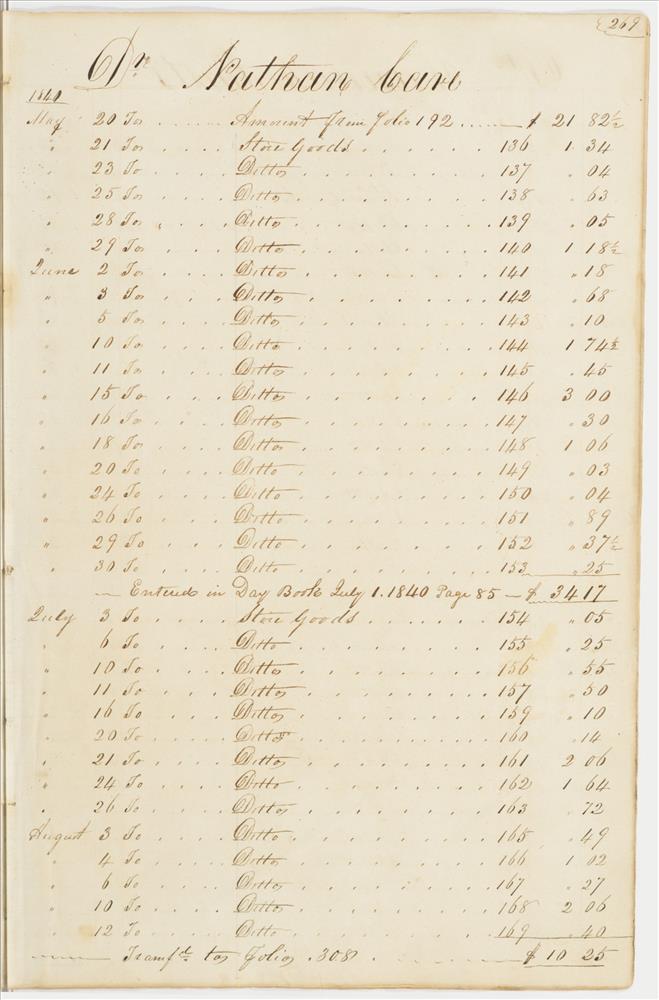 269
Dr Nathan Care
1840
May 20 To Amount from folio 192 $ 21 82½
" 21 To Store Goods 136 1 34
" 23 To Ditto 137 " 04
" 25 To Ditto 138 " 63
" 28 To Ditto 139 " 05
" 29 To Ditto 140 1 18½
June 2 To Ditto 141 " 18
" 3 To Ditto 142 " 68
" 5 To Ditto 143 " 10
" 10 To Ditto 144 1 74½
" 11 To Ditto 145 " 45
" 15 To Ditto 146 3 00
" 16 To Ditto 147 " 30
" 18 To Ditto 148 1 06
" 20 To Ditto 149 " 03
" 24 To Ditto 150 " 04
" 26 To Ditto 151 " 89
" 29 To Ditto 152 " 37½
" 30 To Ditto 153 " 25
Entered in Day Book July 1. 1840 Page 85 $ 34 17
July 3 To Store Goods 154 " 05
" 6 To Ditto 155 " 25
" 10 To Ditto 156 " 55
" 11 To Ditto 157 " 50
" 16 To Ditto 159 " 10
" 20 To Ditto 160 " 14
" 21 To Ditto 161 2 06
" 24 To Ditto 162 1 64
" 26 To Ditto 163 " 72
August 3 To Ditto 165 " 49
" 4 To Ditto 166 1 02
" 6 To Ditto 167 " 27
" 10 To Ditto 168 2 06
" 12 To Ditto 169 " 40
Transfd to folio 308 $ 10 25